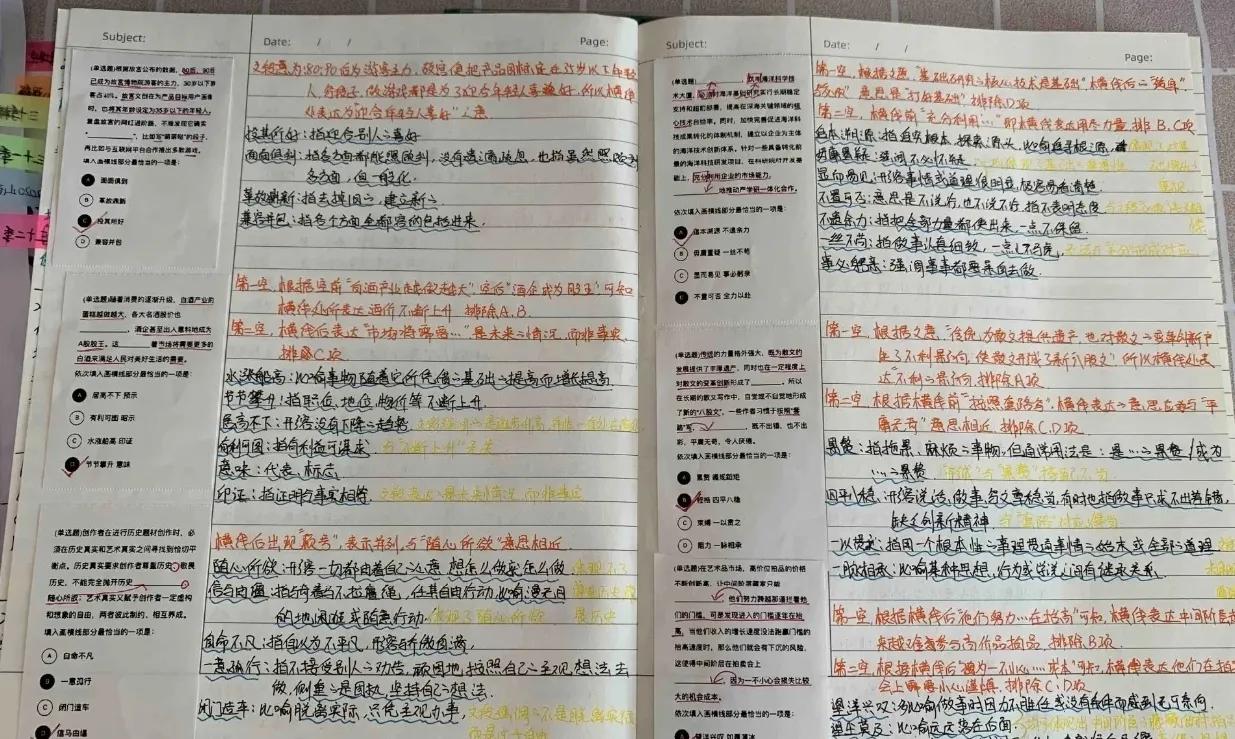 Subject:
Date: / /
Page:
(单选题)根据故宫公布的数据，80后、90后
已成为故宫博物院游客的主力，30岁以下游
客占40%。故宫文创在为产品目标用户画像
时，也将其年龄设定为35岁以下的年轻人。
重盘故宫的网红进阶路，不难发现它确实
________，比如写"萌萌哒"的段子，
再比如与互联网平台合作推出多款游戏。
填入画横线部分最恰当的一项是：
A 面面俱到
B 革故鼎新
C 投其所好
D 兼容并包
文段意为:80、90后为游客主力，故宫便把产品目标定在35岁以下年轻
人，写段子、做游戏都是为了迎合年轻人喜好，所以横线
处表达为"迎合年轻人喜好"之意
投其所好：指迎合别人之喜好
面面俱到：指各方面都能照顾到，没有遗漏疏忽，也指虽然照顾到
各方面，但一般化.
革故鼎新：指去掉旧之，建立新之
兼容并包：指各个方面全都容纳包括进来.
(单选题)随着消费的逐渐升级，白酒产业的
蛋糕越做越大，各大名酒股价也
________，酒企甚至出人意料地成为
A股股王。这________着市场将需要更多的
白酒来满足人民对美好生活的需要。
依次填入画横线部分最恰当的一项是：
A 居高不下 预示
B 有利可图 昭示
C 水涨船高 印证
D 节节攀升 意味
第一空，根据空前"白酒产业越做越大"，空后"酒企成为股王"可知
横线处所表达酒价不断上升，排除A、B.
第二空，横线后表达"市场将需要…"是未来之情况，而非事实，
排除C项
水涨船高：比喻事物随着它所凭借之基础之提高而增长提高.
节节攀升：指职位、地位、物价等不断上升.
居高不下：形容没有下降之趋势.
有利可图：指有利益可谋求. 与"不断上升"无关
意味：代表、标志
印证：指证明与事实相符.
(单选题)创作者在进行历史题材创作时，必
须在历史真实和艺术真实之间寻找到恰切平
衡点。历史真实要求创作者尊重历史、敬畏
历史，不能完全抛开历史________、
随心所欲；艺术真实又赋予创作者一定虚构
和想象的自由，两者彼此制约、相互养成。
填入画横线部分最恰当的一项是：
A 自命不凡
B 一意孤行
C 闭门造车
D 信马由缰
横线后出现"顿号"，表示并列，与"随心所欲"意思相近.
随心所欲：形容一切都由着自己之心意，想怎么做就怎么做
信马由缰：指骑着马不拉缰绳，任其自由行动，比喻漫无目
的地闲逛或随意行动
自命不凡：指自以为不平凡，形容骄傲自满.
一意孤行：指不接受别人之劝告，顽固地按照自己之主观想法去
做，侧重之是固执，坚持自己之想法.
闭门造车：比喻脱离实际，只凭主观办事.
Subject:
Date: / /
Page:
(单选题)________，欧用海洋科学技
术大厦，________
支持和超前部署，提高在深海关键领域的核
心技术创造率。同时，加快完善促进海洋科
技成果转化的体制机制，建立以企业为主体
的海洋技术创新体系。针对一些具备转化前
景的海洋科技研发项目，在科研院所开发基
础上，充分利用企业的市场能力，
________地推动产学研一体化合作。
依次填入画横线部分最恰当的一项是：
A 追本溯源 不遗余力
B 毋庸置疑 一丝不苟
C 显而易见 事必躬亲
D 不置可否 全力以赴
第一空，根据文意，"基础研究之核心技术是基础"，横线后之"筑牢"
意思是"打好基础"，排除D项
第二空，横线前"充分利用…"即横线表达用尽力量，排B、C项
追本溯源：指追究根本，探索源头，比喻追寻根源.
毋庸置疑：
显而易见：形容事情或道理很明显，极容易看清楚
不置可否：意思是不说好，也不说不好，指不表明态度
不遗余力：指把全部力量都使出来，一点不保留.
一丝不苟：指做事认真细致，一点儿不马虎.
事必躬亲：强调事事都要亲自去做.
(单选题)传统的力量格外强大，既为散文的
发展提供了丰厚遗产，同时也在一定程度上
对散文的变革创新形成了________。所以
在长期的散文写作中，自觉或不自觉地形成
了新的"八股文"，一些作者习惯于按照"套
路"写，________，既不出错，也不出
彩，平庸无奇，令人厌倦。
依次填入画横线部分最恰当的一项是：
A 累赘 循规蹈矩
B 桎梏 四平八稳
C 束缚 一以贯之
D 阻力 一脉相承
第一空，根据文意，"传统为散文提供遗产，也对散文之变革创新产
生了不利影响，使散文形成了新八股文"所以横线处表
达"不利之影响，排除A项
第二空，根据横线前"按照套路写"，横线表达之意思应当与"平
庸无奇"意思相近，排除C、D项.
累赘：指拖累、麻烦之事物，但通常用法是：是…之累赘/成为
…之累赘
四平八稳：形容说话、做事、写文章稳当，有时也指做事只求不出差错，
缺乏创新精神
一以贯之：指用一个根本性之事理贯通事情之始末或全部之道理
一脉相承：比喻某种思想、行为或学说之间有继承关系.
(单选题)在艺术品市场，高价位拍品的价格
不断创新高，让中间阶层藏家只能
________，他们努力跨越那道拦着他
们的门槛，可是发现进入的门槛逐年在抬
高，当他们收入的增长速度没法跑赢门槛的
抬高速度时，那么他们就会有下沉的风险，
这使得中间阶层在拍卖会上
________，因为一不小心会损失比较
大的机会成本。
依次填入画横线部分最恰当的一项是：
A 望洋兴叹 如履薄冰
第一空，根据横线后"他们努力…在抬高"可知，横线表达中间阶层
来越难参与高价品拍品，排除B项.
第二空，根据横线后"因为一不小心…成本"可知，横线表达他们在拍卖
会上需要小心谨慎，排除C、D项
望洋兴叹：多比喻做事时因力不胜任或没有条件而感到无可奈何.
望尘莫及：比喻远远落在后面.